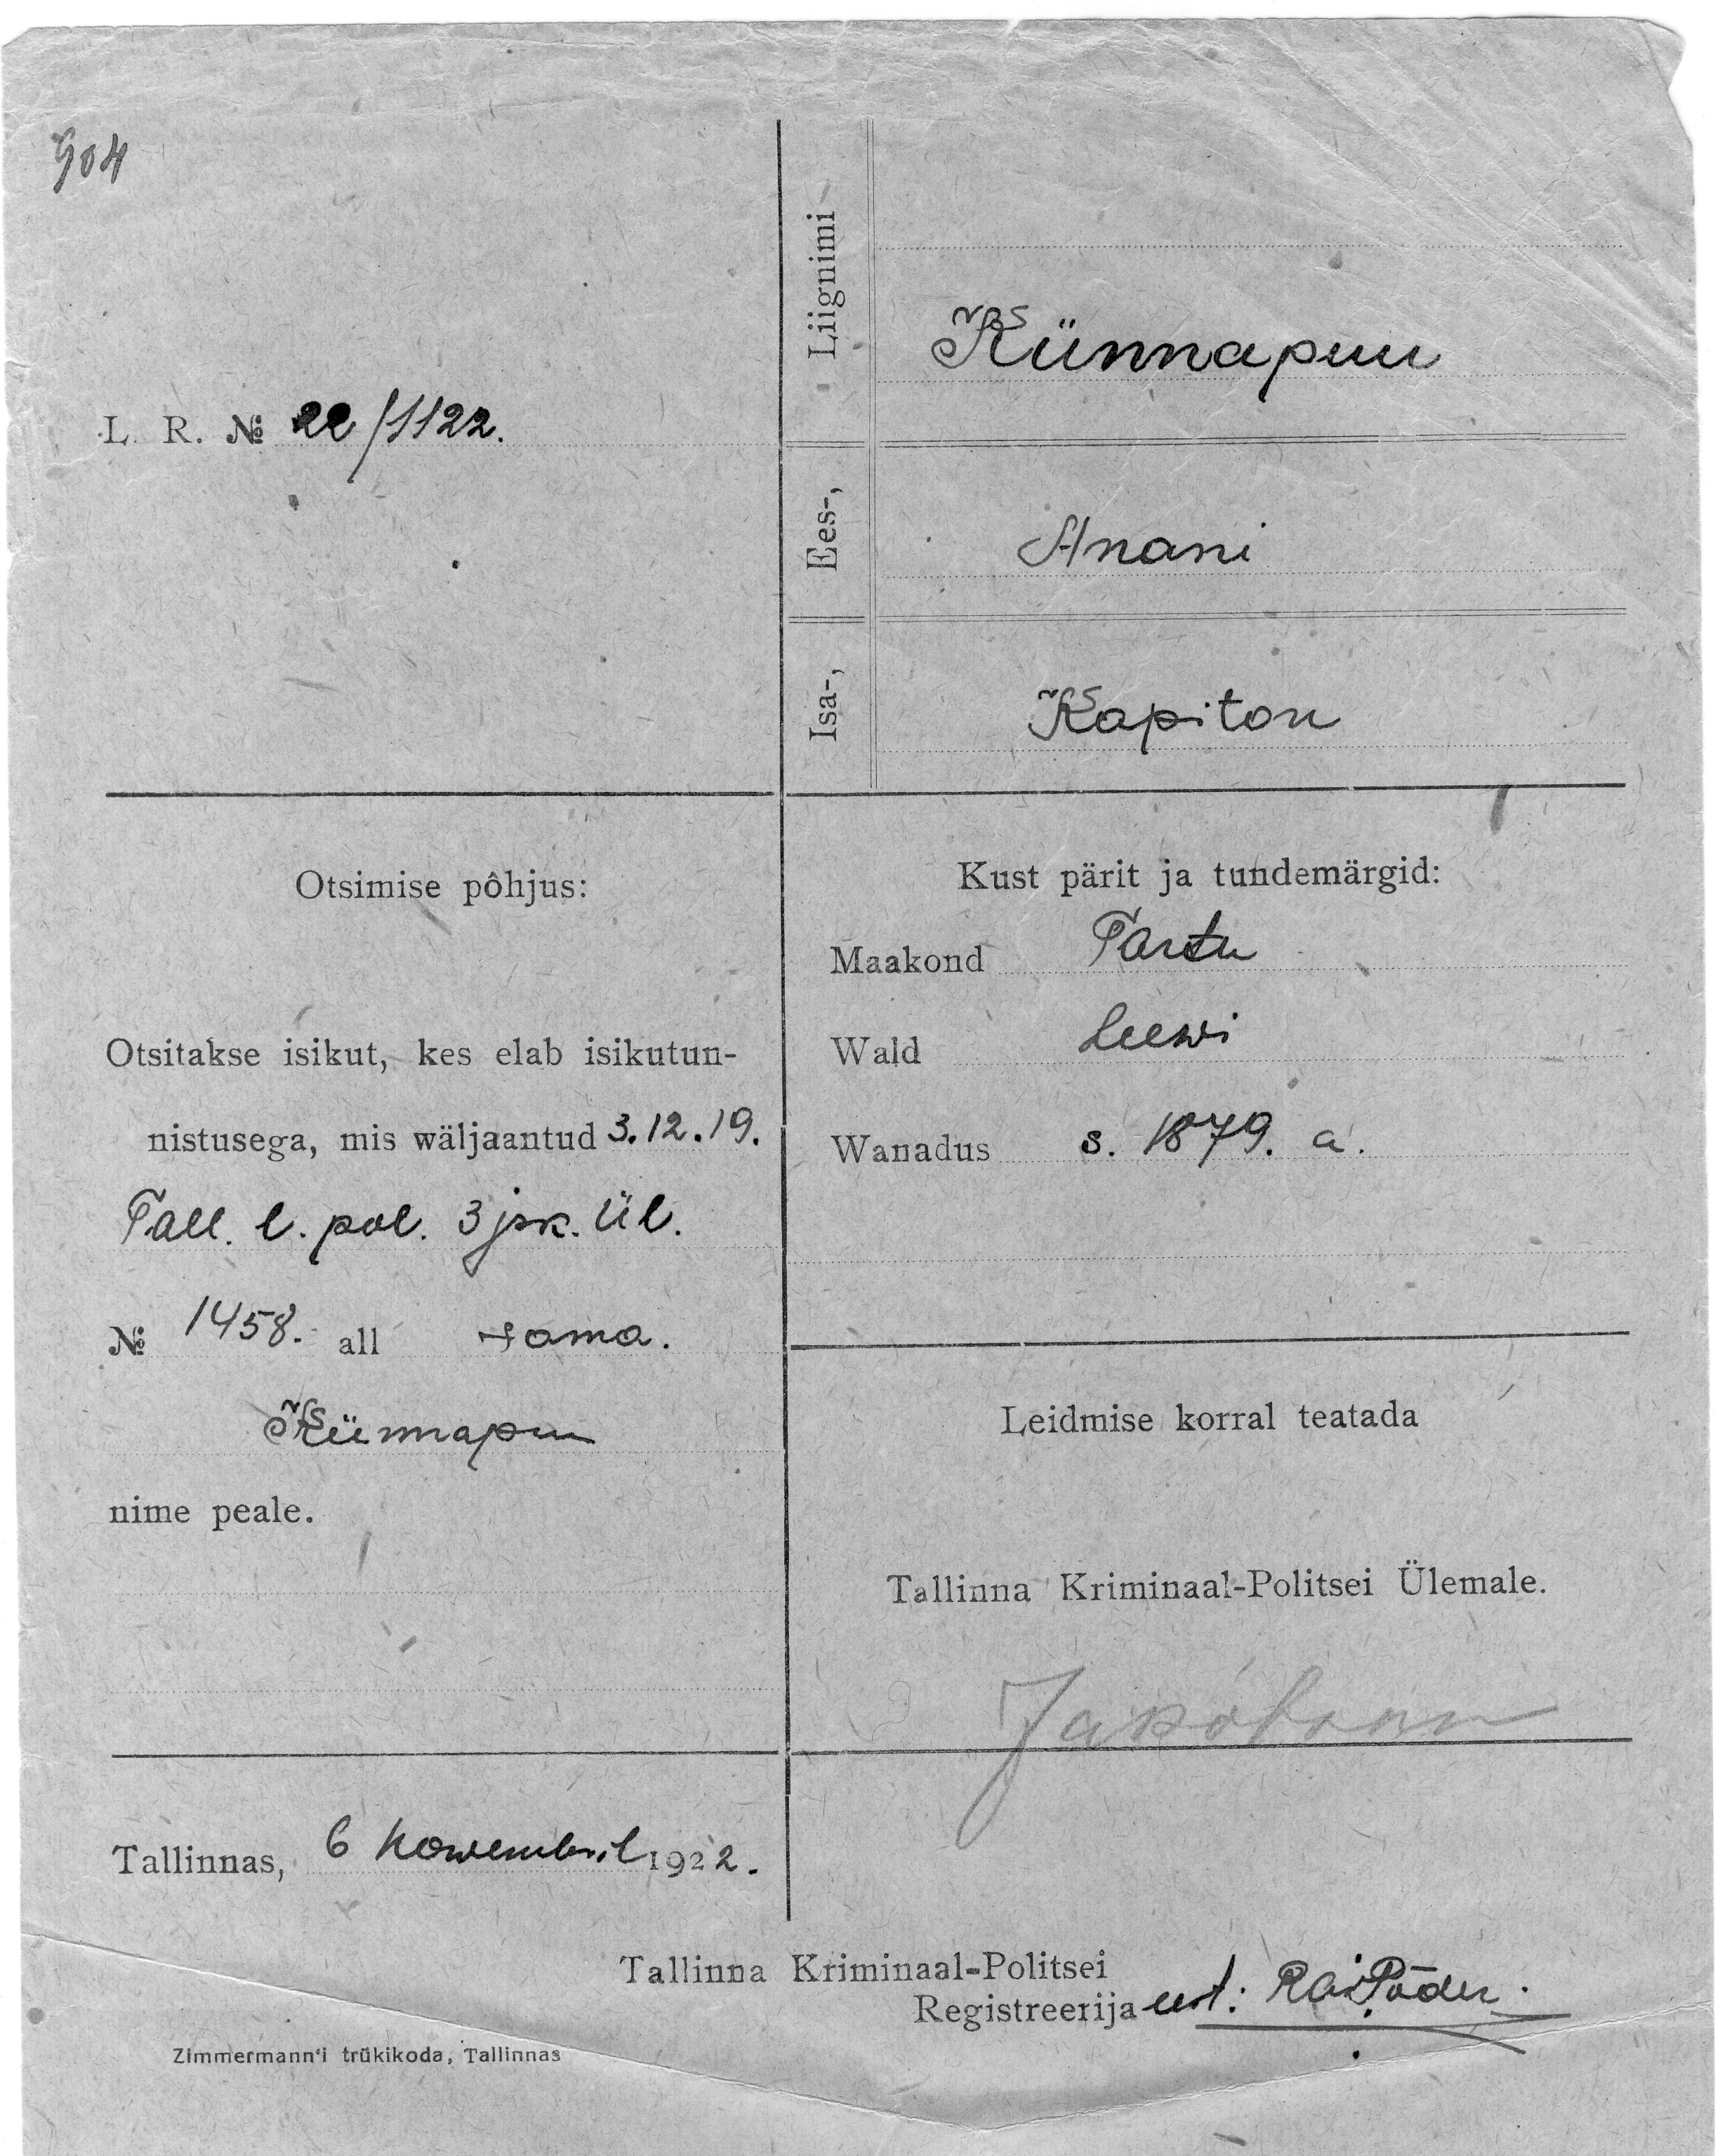 904
L. R. № 22/1122.
Liignimi
Künnapuu
Ees-,
Anani
Isa-,
Kapiton
Otsimise pôhjus:
Otsitakse isikut, kes elab isikutun-
nistusega, mis wäljaantud 3.12.19.
Tall. l. pol. 3 jsk. Ül.
№ 1458. all sama.
Künnapuu
nime peale.
Kust pärit ja tundemärgid:
Maakond Tartu
Wald Leewi
Wanadus s. 1879. a.
Leidmise korral teatada
Tallinna Kriminaal-Politsei Ülemale.
Tallinnas, 6 Nowembril 1922.
Tallinna Kriminaal-Politsei
Registreerija
Zimmermann'i trükikoda, Tallinnas